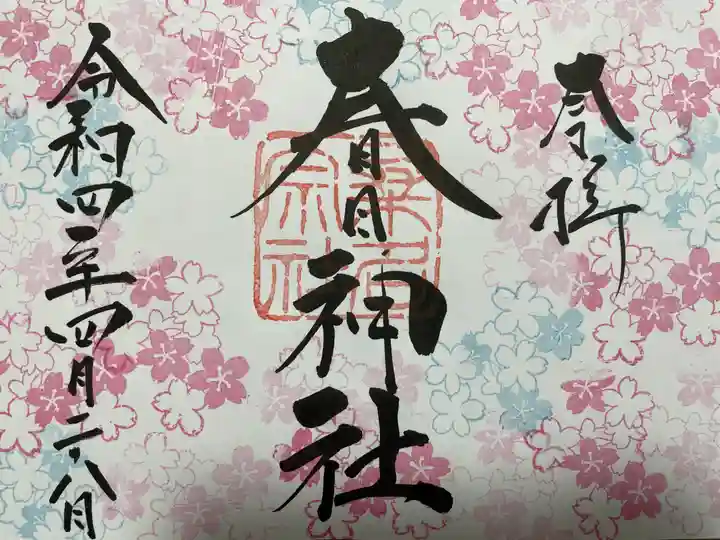 奉拝
春日神社
桑名
宗社
令和四年四月二十八日